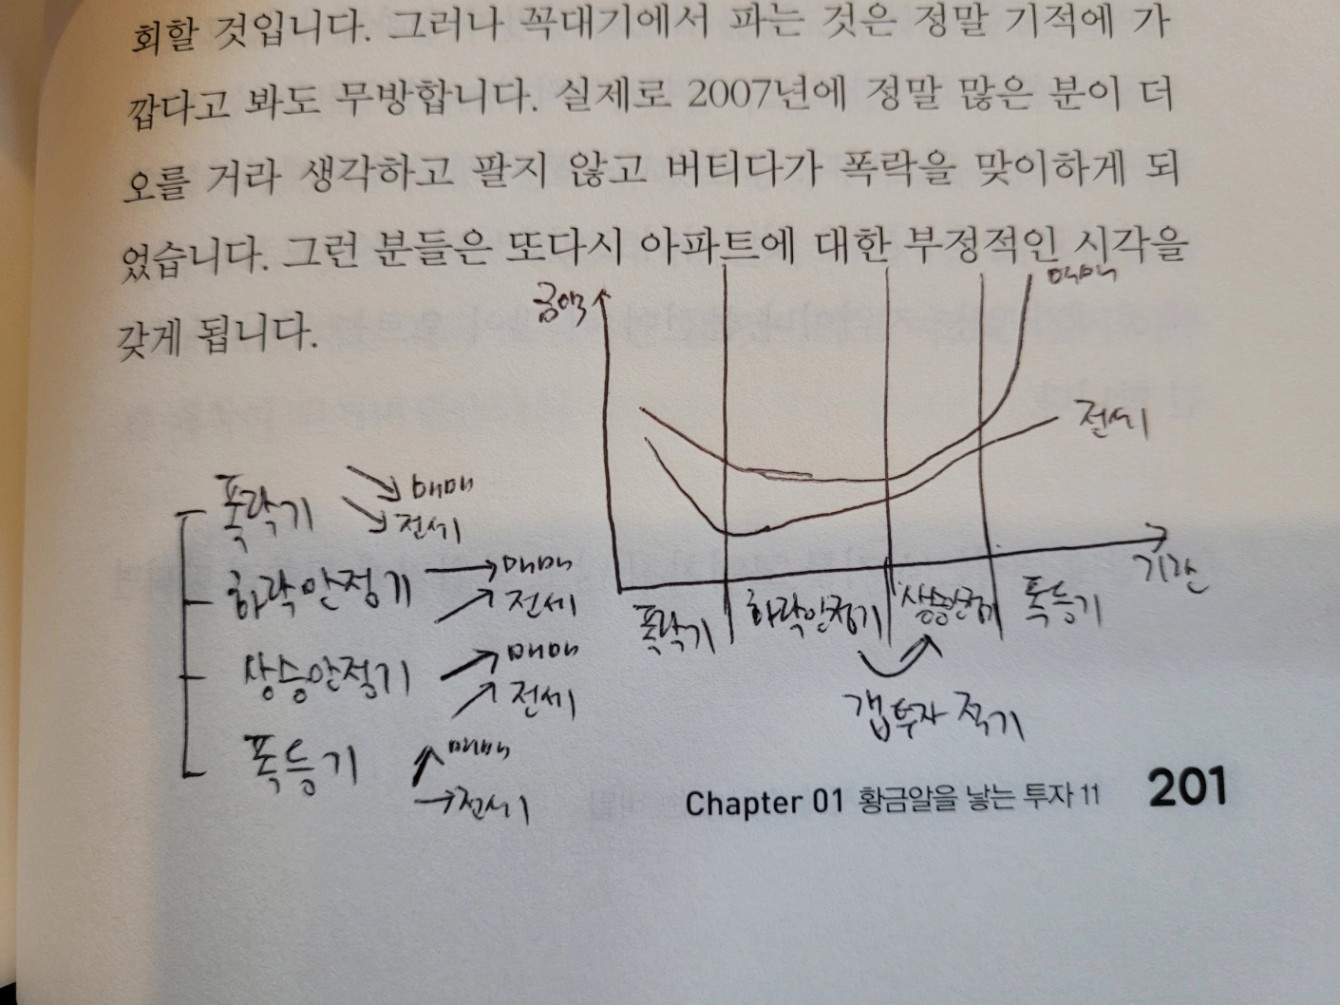 회할 것입니다. 그러나 꼭대기에서 파는 것은 정말 기적에 가
깝다고 봐도 무방합니다. 실제로 2007년에 정말 많은 분이 더
오를 거라 생각하고 팔지 않고 버티다가 폭락을 맞이하게 되
었습니다. 그런 분들은 또다시 아파트에 대한 부정적인 시각을
갖게 됩니다.
금액
매매
전세
기간
폭락기 하락안정기 상승안정기 폭등기
갭투자 적기
폭락기 매매
전세
하락안정기 매매
전세
상승안정기 매매
전세
폭등기 매매
전세
Chapter 01 황금알을 낳는 투자 11 201